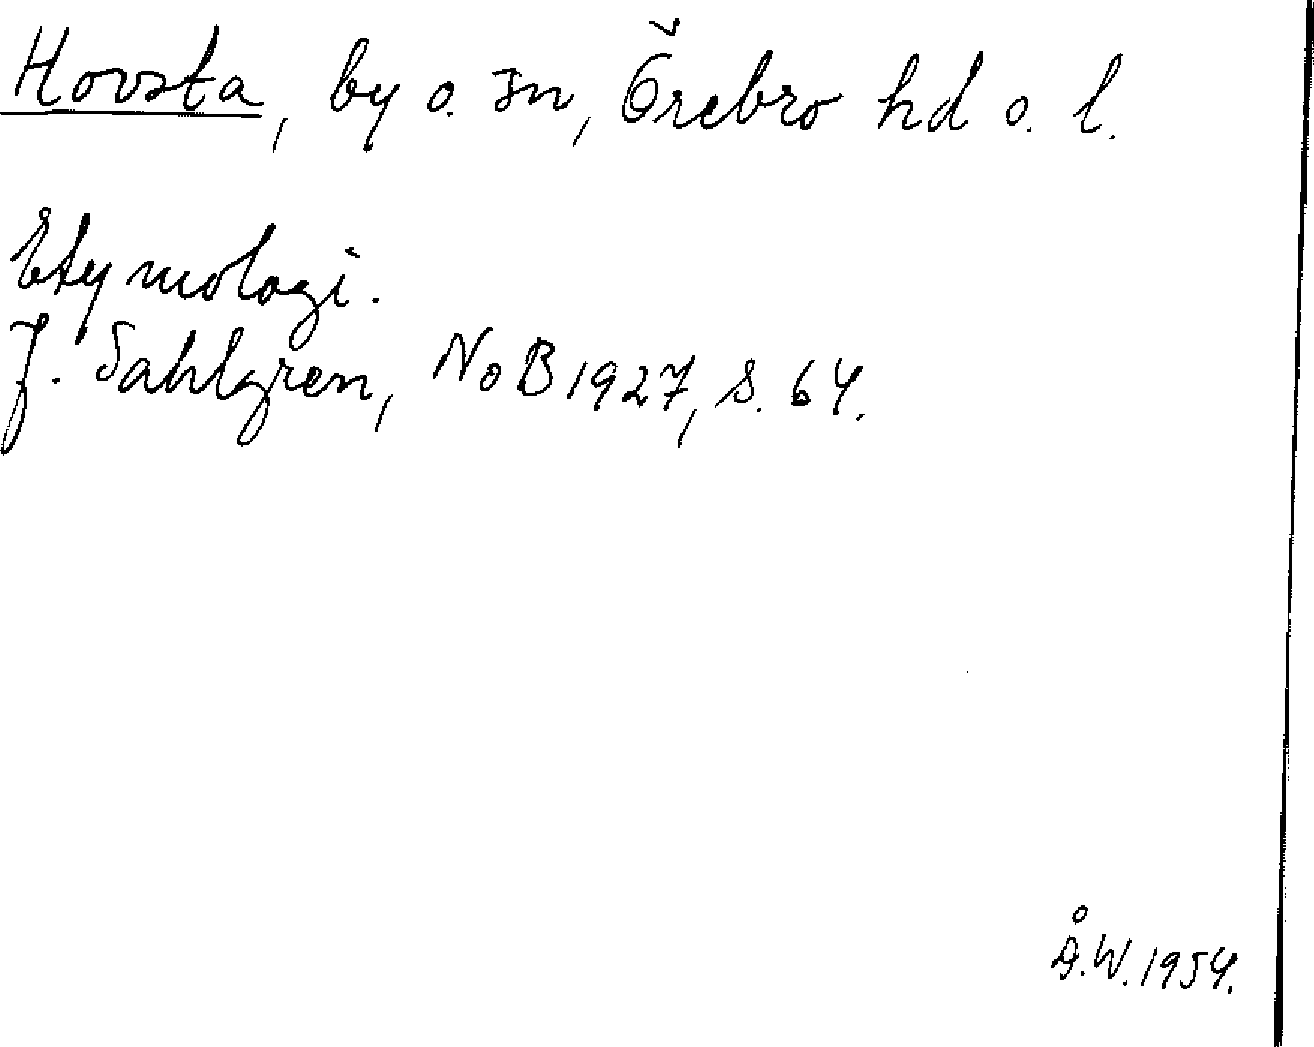 Hovsta, by o. sn, Örebro hd o. l.
Etymologi.
J. Sahlgren, NoB 1927, s. 64.
Å.W. 1954.